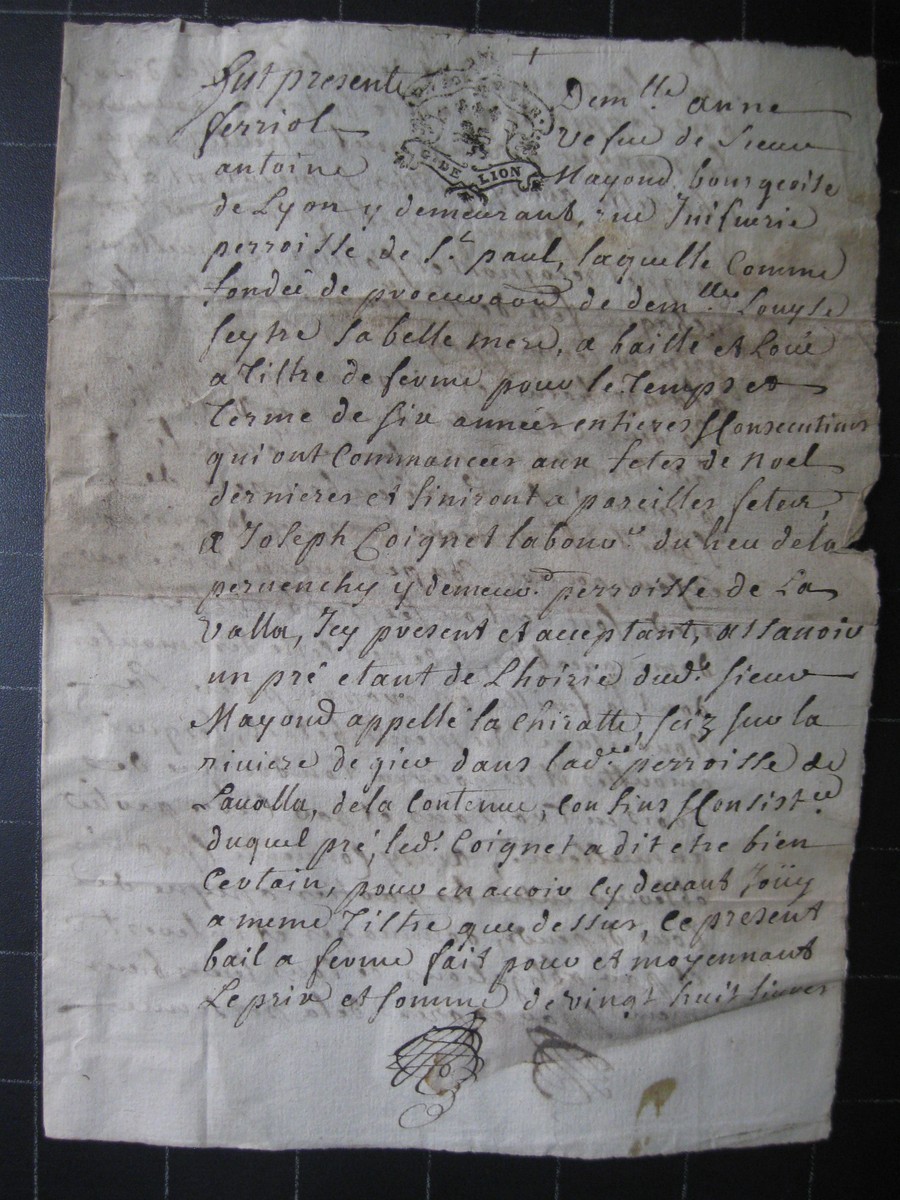 fut presente Dem.lle anne
ferriol vefue de Sieur
antoine Mayond, bourgeoise
G. DE LION
de Lyon y demeurant, rue Juifuerie
perroisse de S.t paul, laquelle Comme
fondeé de procuraon de dem.lle Louyse
seytre sa belle mere, a baille et Loué
a Tiltre de ferme pour le Temps et
Terme de six anneés entieres & Consecutiues
qui ont Commanceés aux fetes de noel
dernieres et finiront a pareilles fetes,
a Joseph Coignet labour.r du lieu dela
peruenchy y demeur.t perroisse de La
Valla, Icy present et acceptant, assauoir
un pré etant de Lhoirie dud.t sieur
Mayond appellé la Chiratte, scis sur la
riuiere de gier dans lad.e perroisse de
Lavalla, dela Contenue, Confins & Consist.ce
duquel pré, led.t Coignet a dit etre bien
Certain, pour en auoir Cy deuant Joüy
a meme Tiltre que dessus, Ce present
bail a ferme fait pour et moyennant
Le prix et somme de vingt huit liures